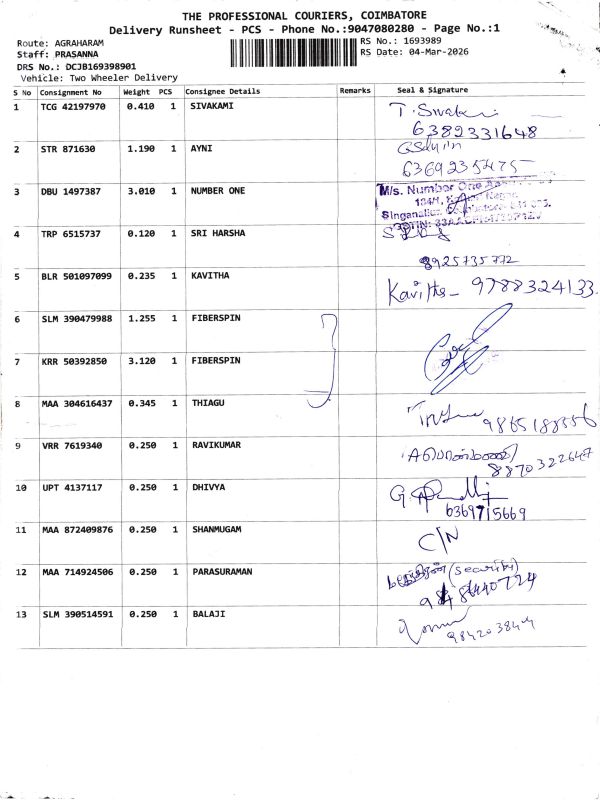 THE PROFESSIONAL COURIERS, COIMBATORE
Delivery Runsheet - PCS - Phone No.:9047080280 - Page No.:1
Route: AGRAHARAM
RS No.: 1693989
Staff: PRASANNA
RS Date: 04-Mar-2026
DRS No.: DCJB169398901
Vehicle: Two Wheeler Delivery
S No Consignment No Weight PCS Consignee Details Remarks Seal & Signature
1 TCG 42197970 0.410 1 SIVAKAMI T. Sivakami
6389331648
2 STR 871630 1.190 1 AYNI
6369235475
3 DBU 1497387 3.010 1 NUMBER ONE M/s. Number One
Singanallur,
4 TRP 6515737 0.120 1 SRI HARSHA
8925735772
5 BLR 501097099 0.235 1 KAVITHA Kavitha - 9788324133
6 SLM 390479988 1.255 1 FIBERSPIN
7 KRR 50392850 3.120 1 FIBERSPIN
8 MAA 304616437 0.345 1 THIAGU
9 VRR 7619340 0.250 1 RAVIKUMAR
8870322647
10 UPT 4137117 0.250 1 DHIVYA
6369715669
11 MAA 872409876 0.250 1 SHANMUGAM C/N
12 MAA 714924506 0.250 1 PARASURAMAN (Security)
13 SLM 390514591 0.250 1 BALAJI